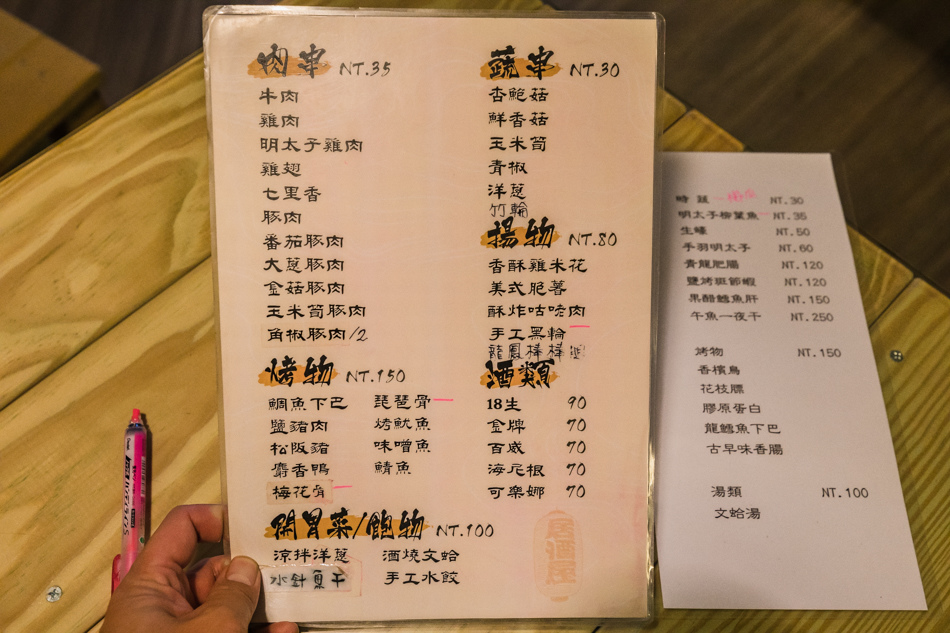 肉串 NT.35
牛肉
雞肉
明太子雞肉
雞翅
七里香
豚肉
番茄豚肉
大蔥豚肉
金菇豚肉
玉米筍豚肉
角椒豚肉/2
烤物 NT.150
鯛魚下巴 琵琶骨
鹽豬肉 烤魷魚
松阪豬 味噌魚
麝香鴨 鯖魚
梅花骨
開胃菜/飽物 NT.100
涼拌洋蔥 酒燒文蛤
水針魚干 手工水餃
蔬串 NT.30
杏鮑菇
鮮香菇
玉米筍
青椒
洋蔥
竹輪
揚物 NT.80
香酥雞米花
美式脆薯
酥炸咕咾肉
手工黑輪
龍鳳棒棒
酒類
18生 90
金牌 70
百威 70
海尼根 70
可樂娜 70
居酒屋
時蔬 NT.30
明太子柳葉魚 NT.35
生蠔 NT.50
手羽明太子 NT.60
青龍肥腸 NT.120
鹽烤斑節蝦 NT.120
果醋鱈魚肝 NT.150
午魚一夜干 NT.250
烤物 NT.150
香檳鳥
花枝膘
膠原蛋白
龍鱈魚下巴
古早味香腸
湯類 NT.100
文蛤湯